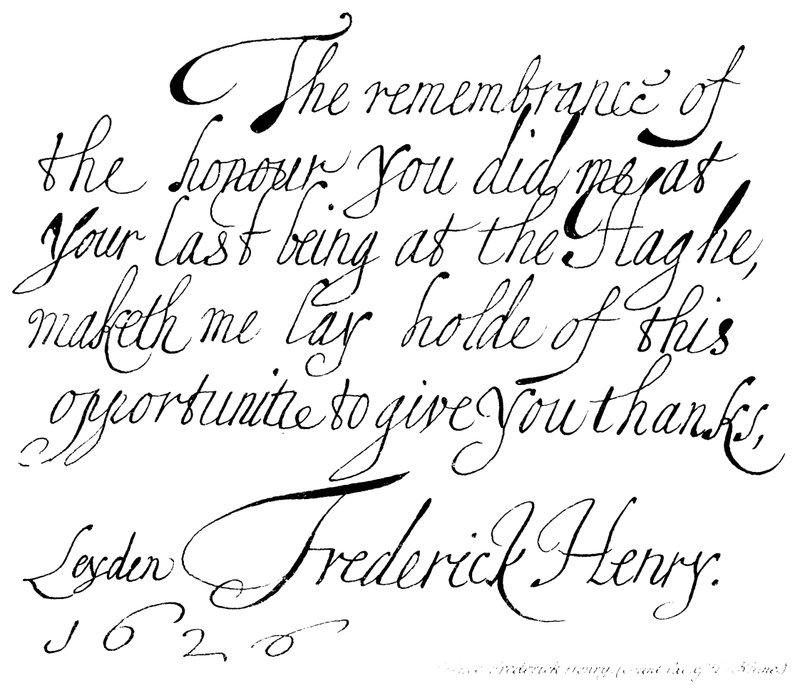 The remembrance of
the honour you did me at
your last being at the Haghe,
maketh me lay holde of this
opportunitie to give you thanks,
Frederick Henry.
Leyden
1626
Frederick Henry